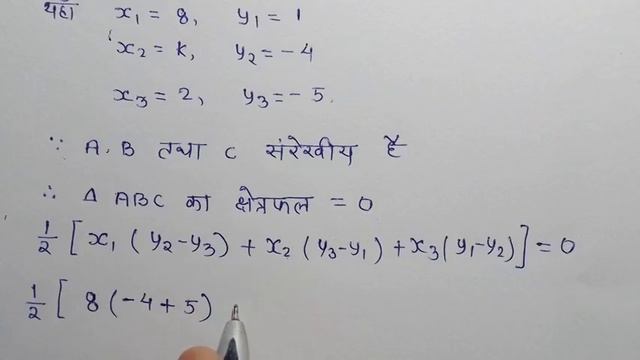 यहाँ x₁ = 8, y₁ = 1
x₂ = k, y₂ = -4
x₃ = 2, y₃ = -5.
∵ A, B तथा C संरेखीय है
∴ Δ ABC का क्षेत्रफल = 0
½ [ x₁ ( y₂-y₃) + x₂ (y₃-y₁) + x₃(y₁-y₂)] = 0
½ [ 8 (-4 + 5)